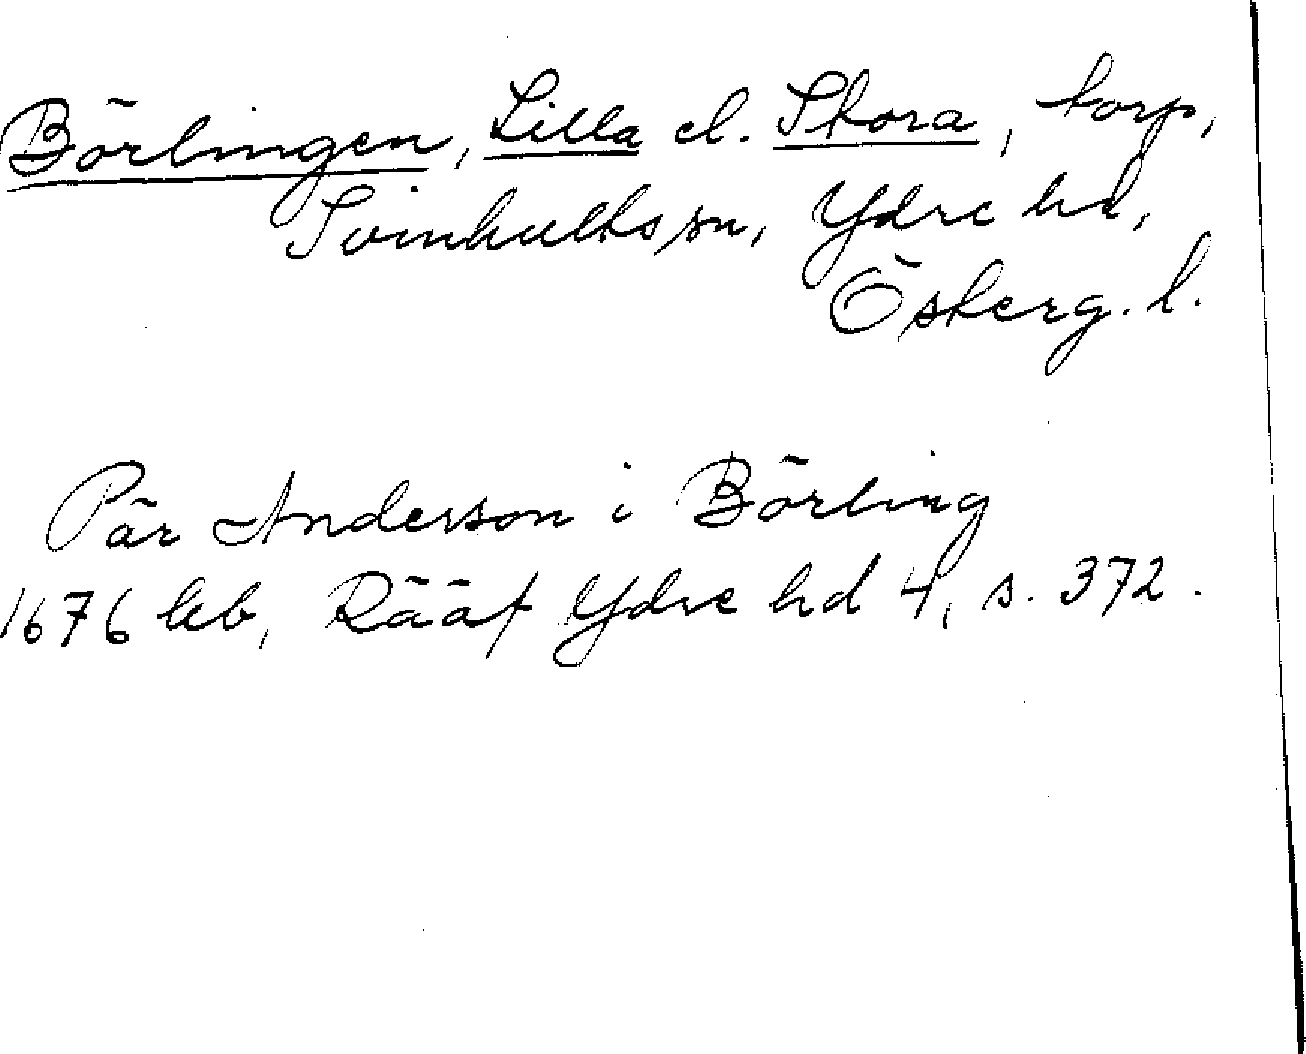 Börlingen, Lilla el. Stora, torp,
Svinhults sn, Ydre hd,
Österg. l.
Pär Anderson i Börling
1676 kb, Rääf Ydre hd 4, s. 372.